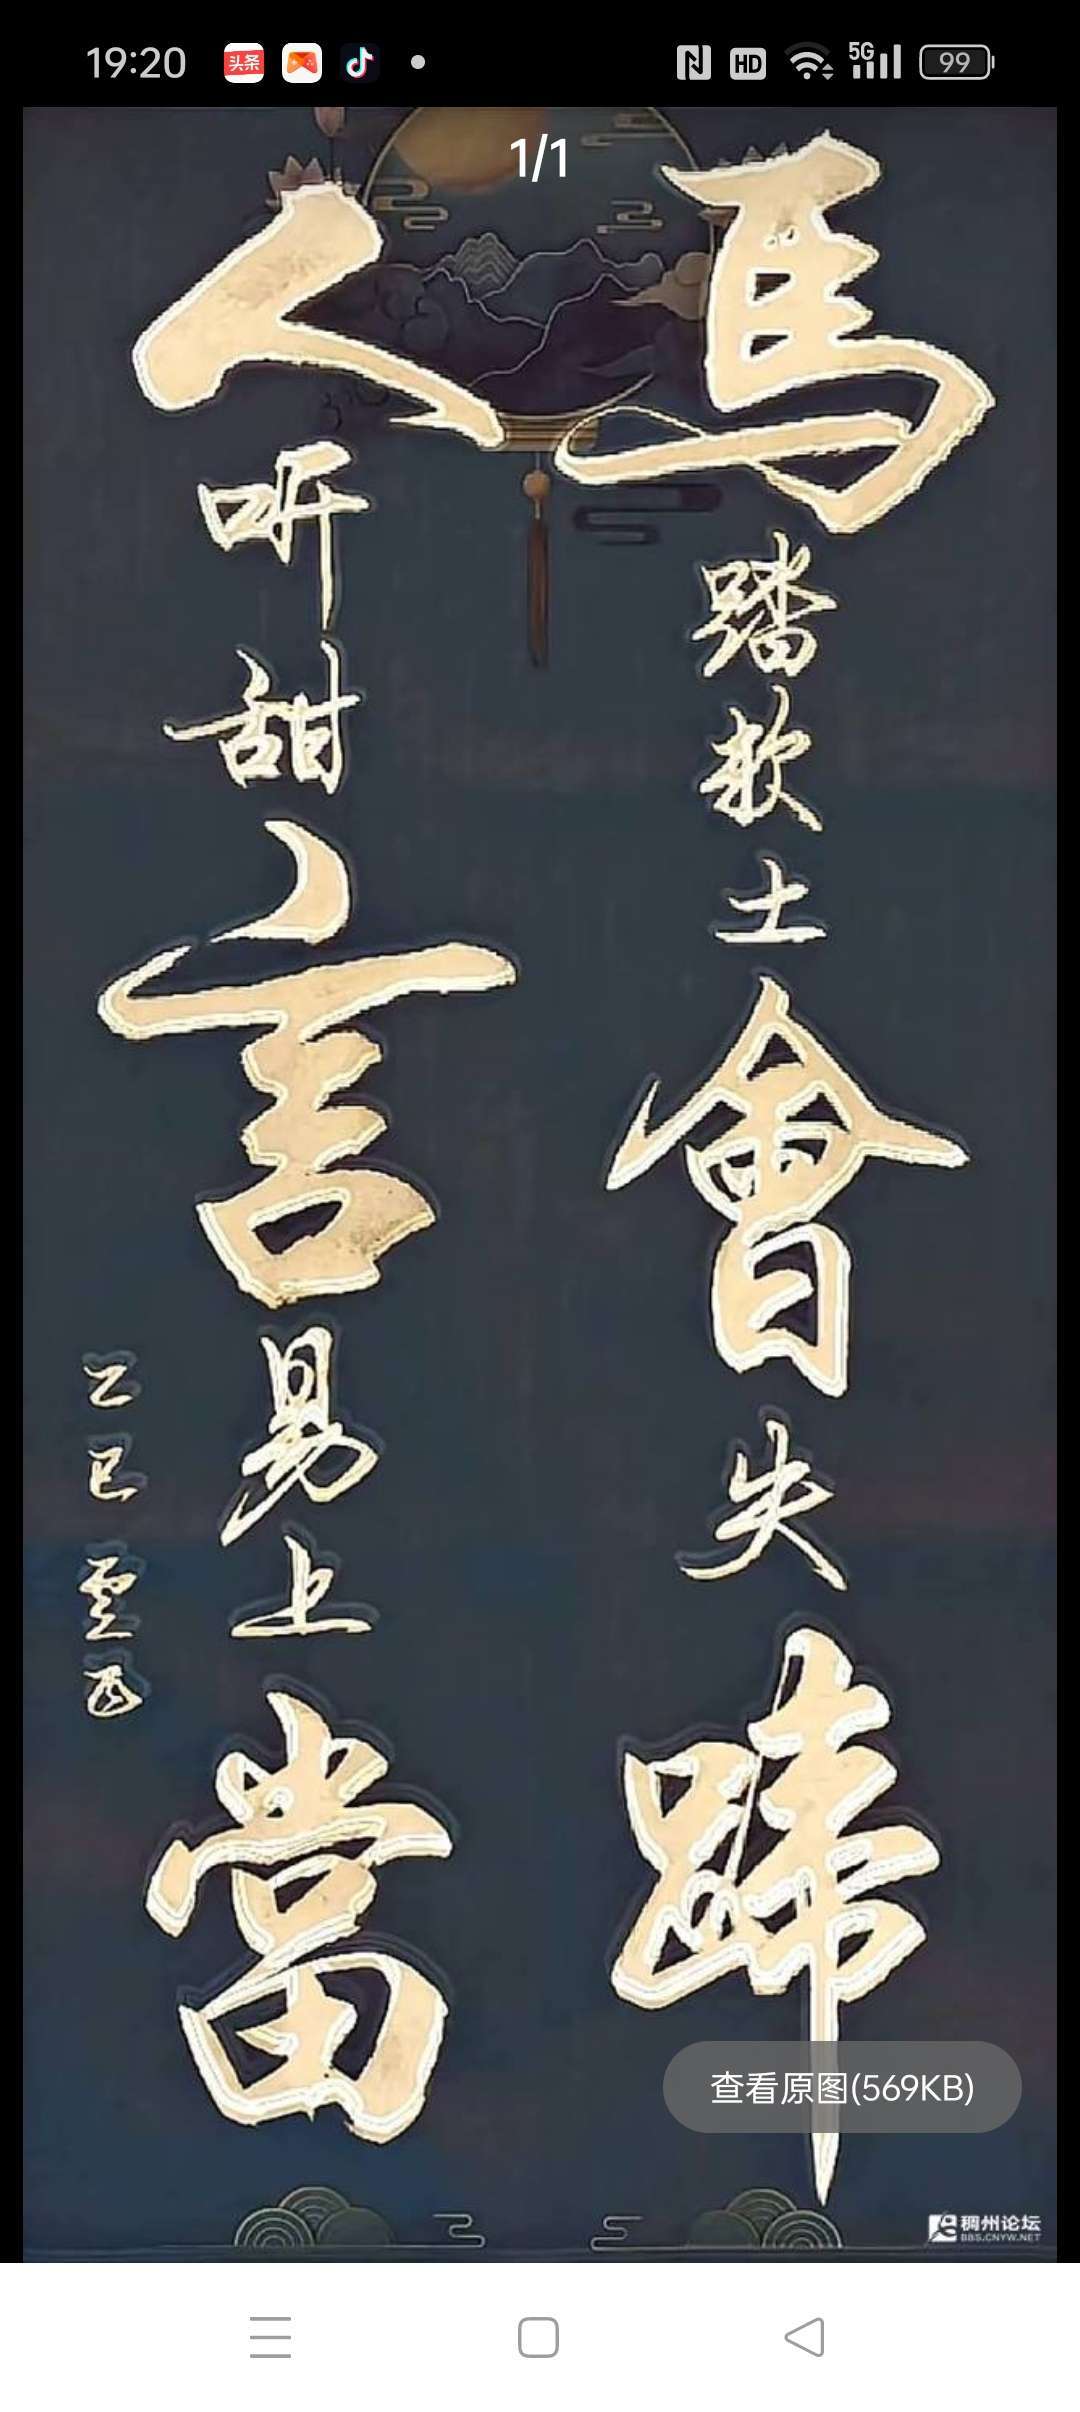 19:20
头条
HD
5G
99
1/1
馬踏软土會失蹄
人听甜言易上當
乙巳雲
查看原图(569KB)
稠州论坛
BBS.CNYW.NET